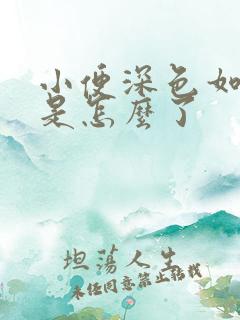 小便深色如
是怎麼了
坦蕩人生
未经同意禁止转载